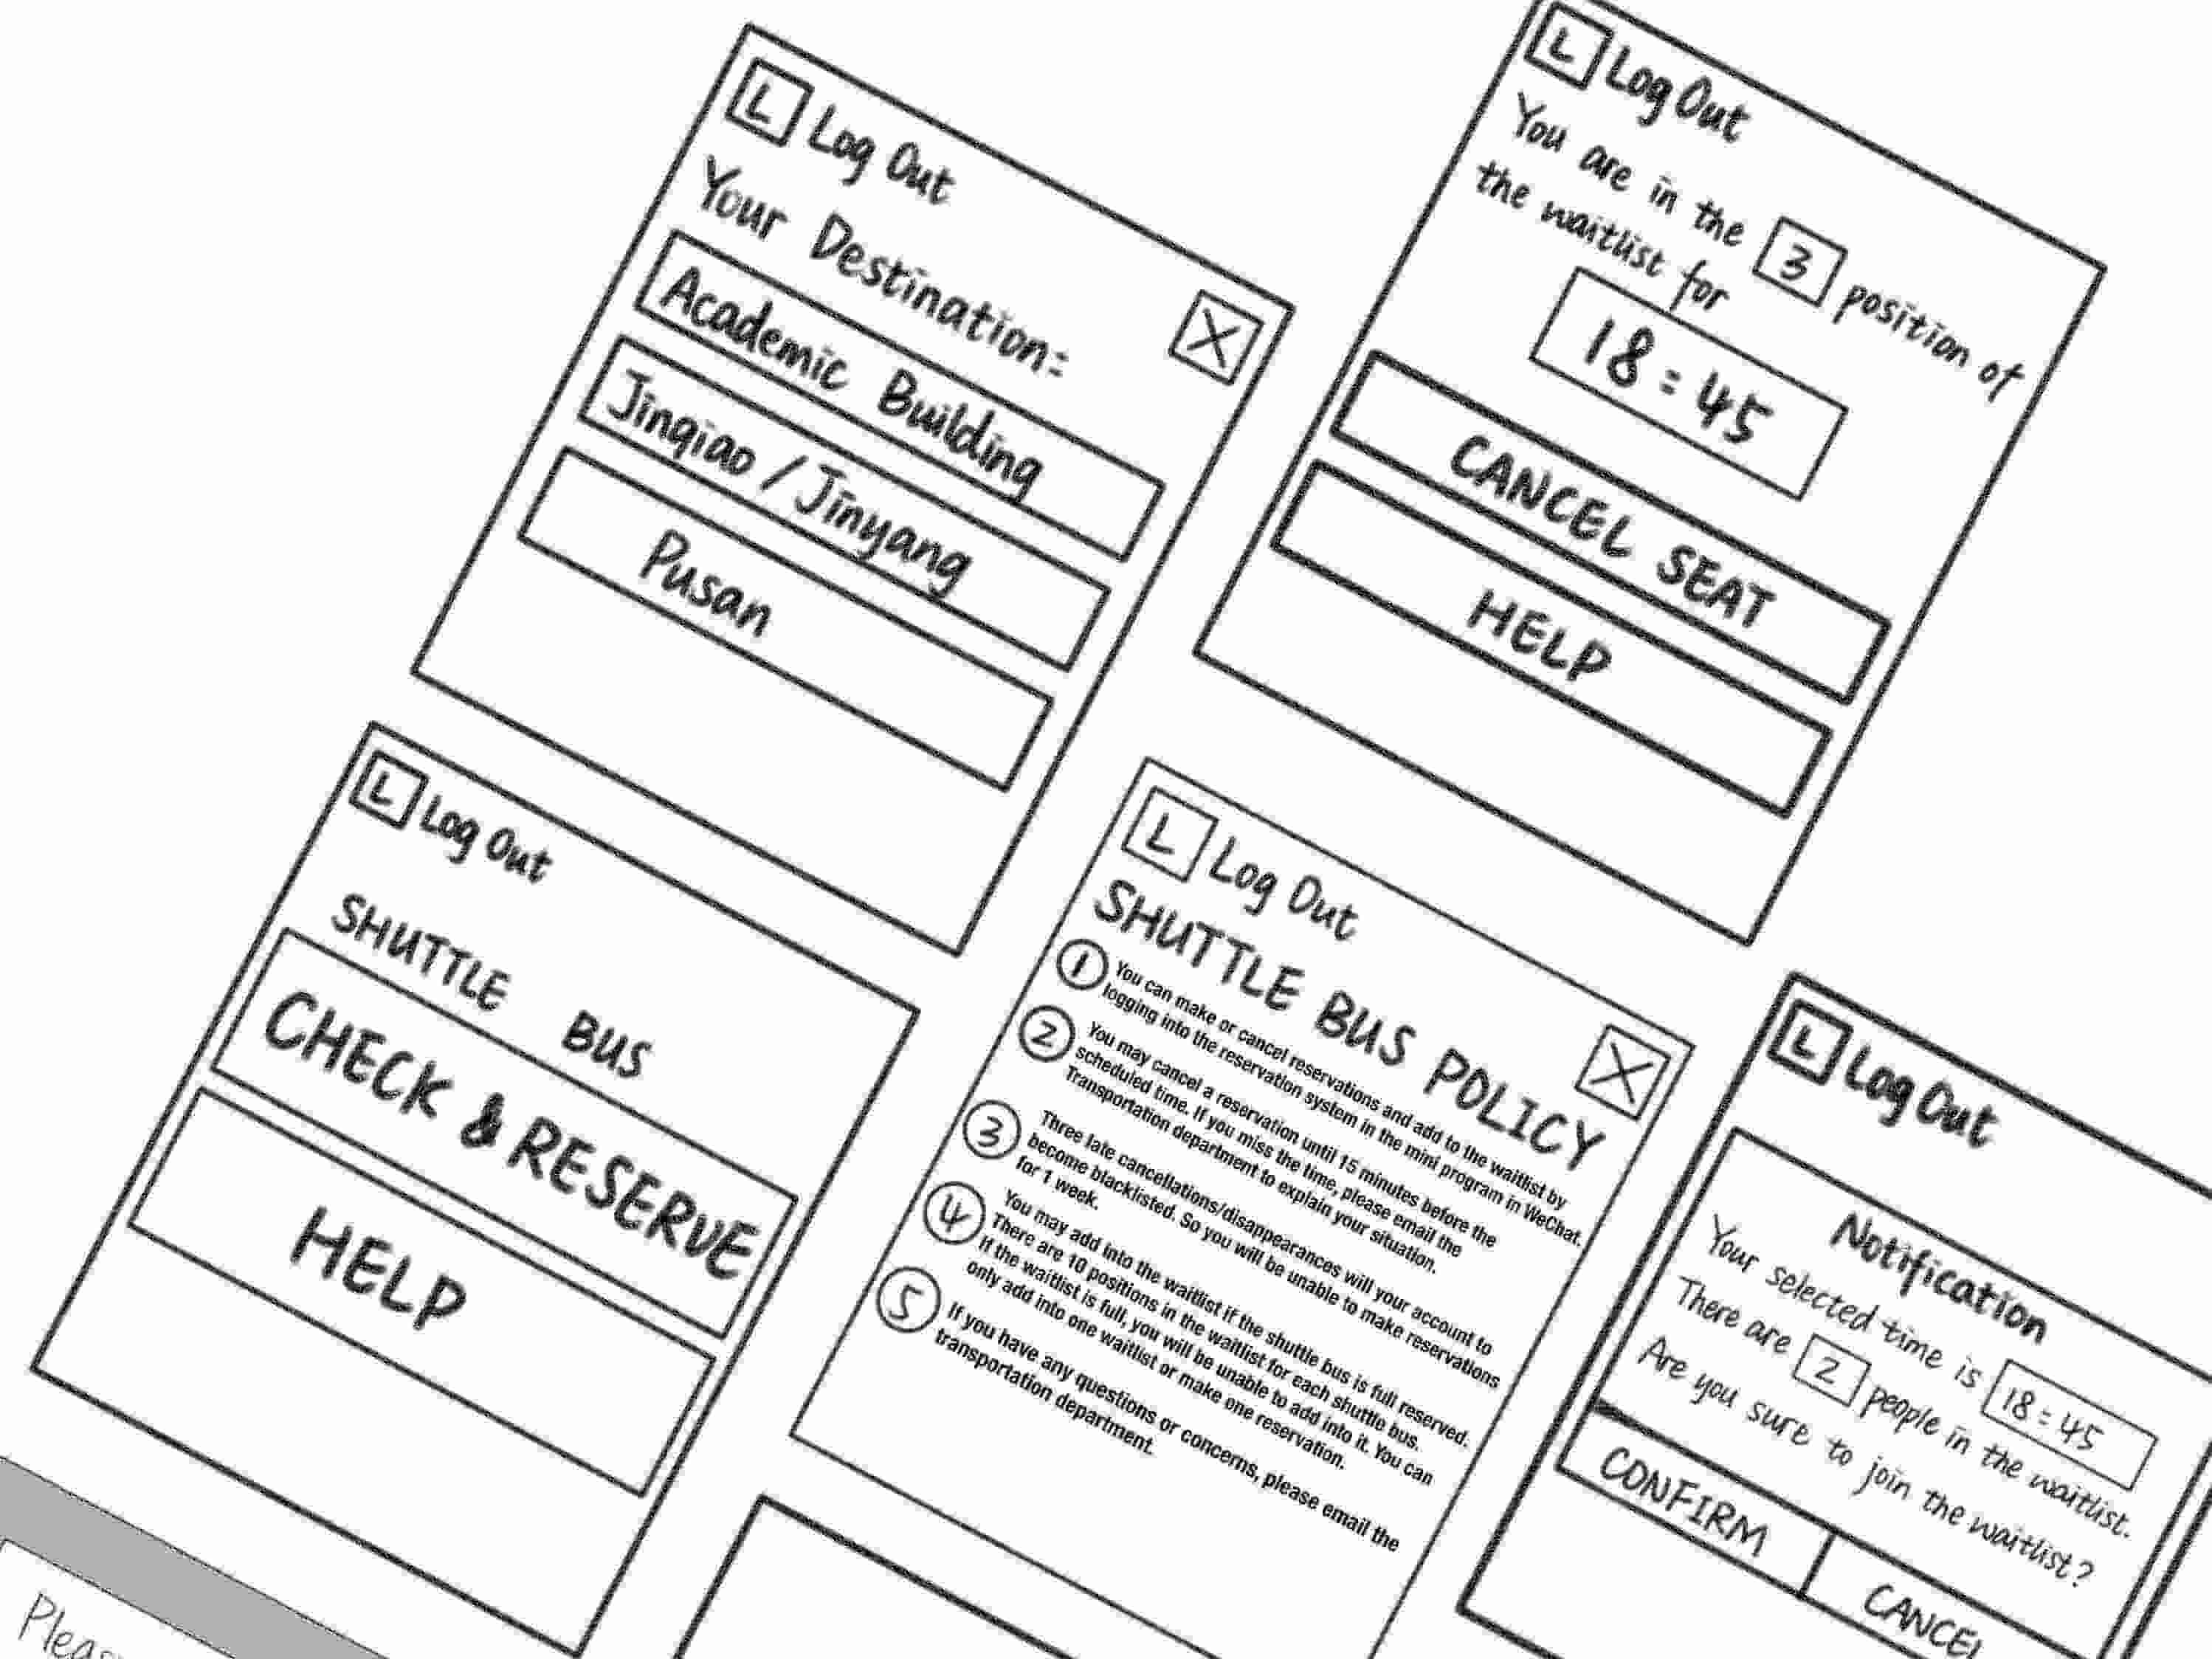 L Log Out
Your Destination:
Academic Building
Jinqiao / Jinyang
Pusan
L Log Out
You are in the 3 position of
the waitlist for
18:45
CANCEL SEAT
HELP
L Log Out
SHUTTLE BUS
CHECK & RESERVE
HELP
L Log Out
SHUTTLE BUS POLICY
1 You can make or cancel reservations and add to the waitlist by
logging into the reservation system in the mini program in WeChat.
2 You may cancel a reservation until 15 minutes before the
scheduled time. If you miss the time, please email the
Transportation department to explain your situation.
3 Three late cancellations/disappearances will your account to
become blacklisted. So you will be unable to make reservations
for 1 week.
4 You may add into the waitlist if the shuttle bus is full reserved.
There are 10 positions in the waitlist for each shuttle bus.
If the waitlist is full, you will be unable to add into it. You can
only add into one waitlist or make one reservation.
5 If you have any questions or concerns, please email the
transportation department.
L Log Out
Notification
Your selected time is 18:45
There are 2 people in the waitlist.
Are you sure to join the waitlist?
CONFIRM
CANCEL